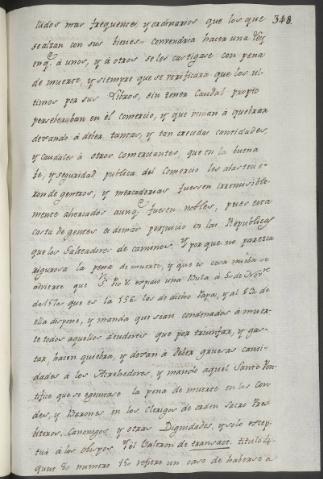 348
tados mas frequentes, y ordinarios que los que
se alzan con sus bienes convendria hacer una Ley
enq.e à unos, y à otros se les castigase con pena
de muerte, y siempre que se verificara que los ul-
timos por sus Libros, sin tener Caudal propio
perseberaban en el comercio, y que venian à quebrar
devando à deber tantas, y tan crecidas cantidades,
y caudales à otros comerciantes, que en la buena
fe, y seguridad publica del Comercio les
de generos, y mercaderias fuesen irremisible-
mente ahorcados aunq.e fuesen nobles, pues esta
casta de gentes es demas perjuicio en las Republicas
que los Salteadores de caminos. Y para que no parezca
rigurosa la pena de muerte, y que es cosa nueba se
advierte que Pio V. expidio una Bula à 5 de
del que es la 136 las de dicho Papa, y al § 3 de
ella dispone, y manda que sean condenados à muer-
te todos aquellos deudores que por triunfar, y gas-
tar hacen quiebra, y devan à deber gruesas canti-
dades à los Acrehedores, y mandò aquel Santo Pon-
tifice que se egecutase la pena de muerte en los Con-
des, y Varones en los Clerigos de orden Sacro Pres-
biteros, Canonigos, y otras Dignidades, y solo excep-
tuò à los obispos. Y el Salzon de transact. titulo 1
quest. numero 16 refiere un caso de haberse a